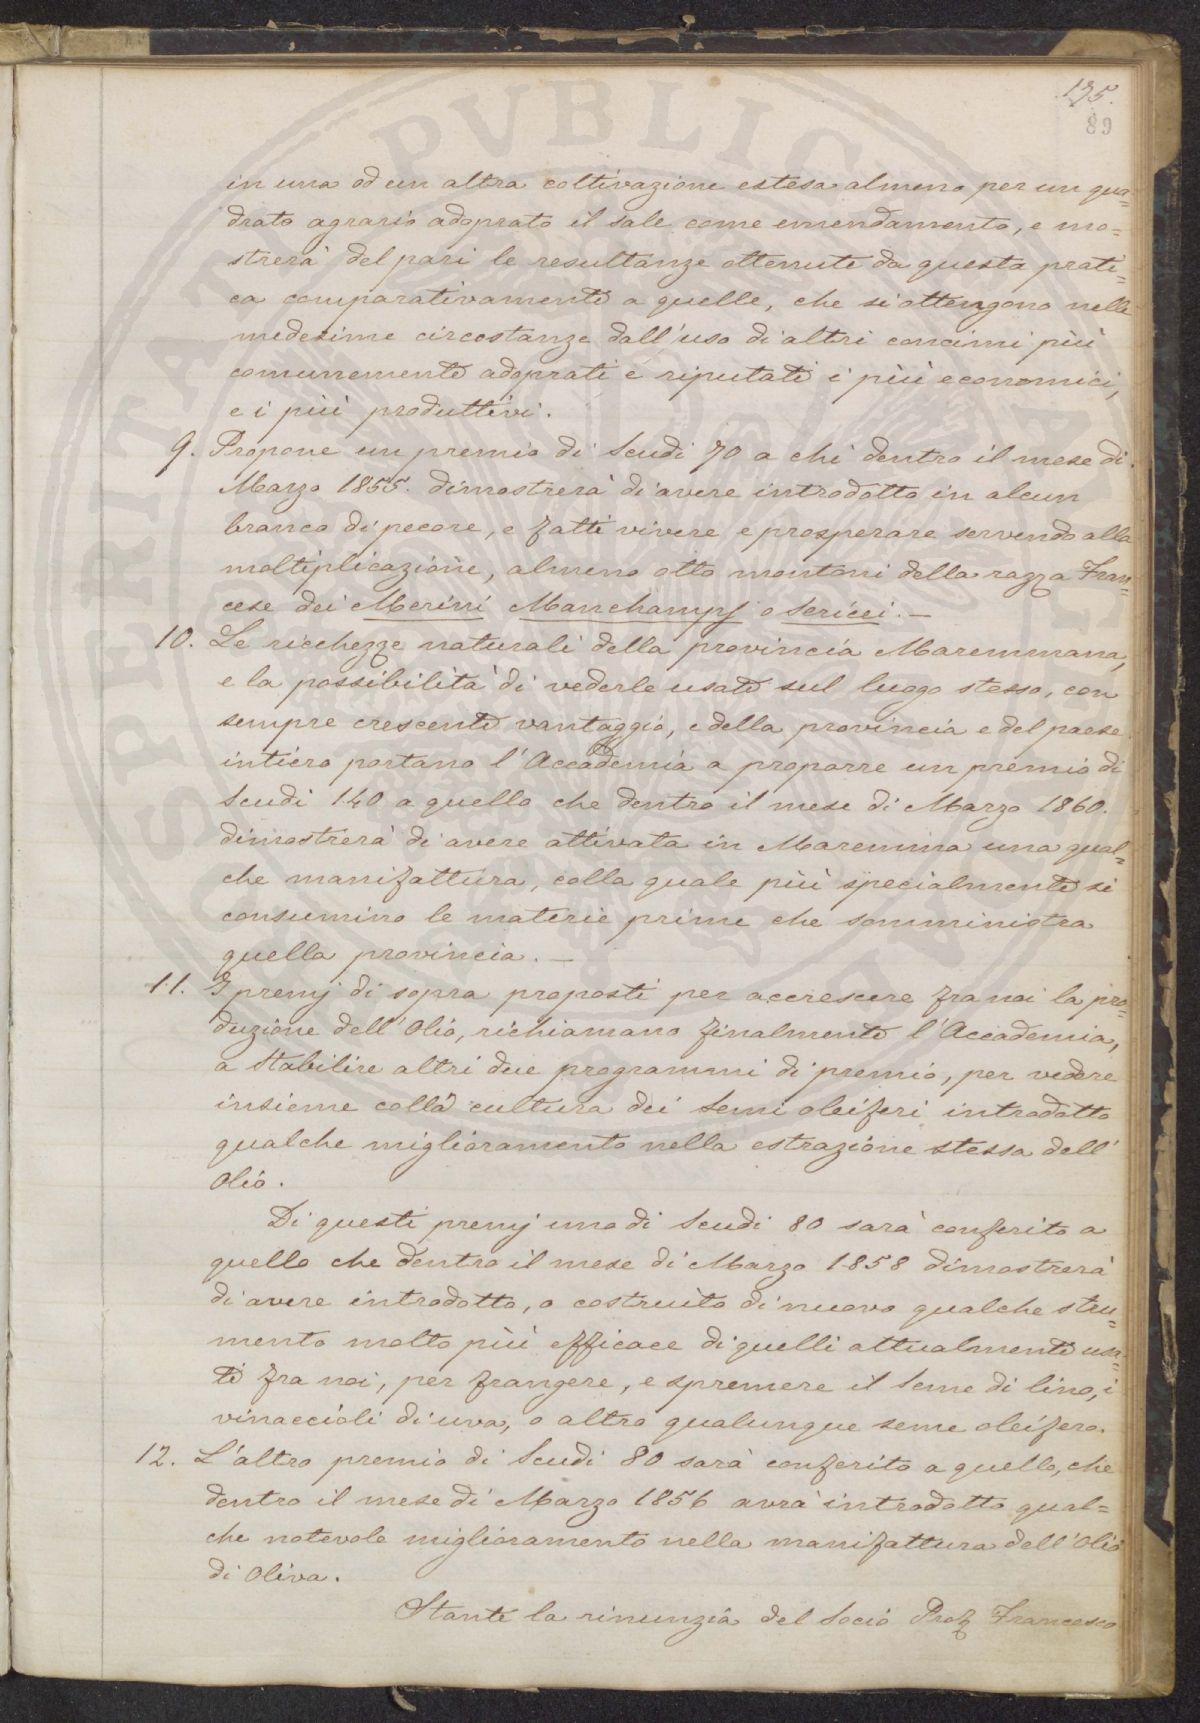 175.
89
in una od un altra coltivazione estesa almeno per un qua=
drato agrario adoprato il sale come emendamento, e mo=
strerà del pari le resultanze ottenute da questa prati=
ca comparativamente a quelle, che si ottengono nelle
medesime circostanze dall'uso di altri concimi più
comunemente adoprati e riputati i più economici,
e i più produttivi.
9. Propone un premio di Scudi 70 a chi dentro il mese di
Marzo 1855. dimostrerà di avere introdotto in alcun
branco di pecore, e fatti vivere e prosperare servendo alla
moltiplicazione, almeno otto montoni della razza Fran=
cese dei Merini Manchamps o Sericei.—
10. Le ricchezze naturali della provincia Maremmana,
e la possibilità di vederle usate sul luogo stesso, con
sempre crescente vantaggio, e della provincia e del paese
intiero portano l'Accademia a proporre un premio di
Scudi 140 a quello che dentro il mese di Marzo 1860.
dimostrerà di avere attivata in Maremma una qual=
che manifattura, colla quale più specialmente si
consumino le materie prime che somministra
quella provincia.—
11. I premj di sopra proposti per accrescere fra noi la pro=
duzione dell'Olio, richiamano finalmente l'Accademia,
a stabilire altri due programmi di premio, per vedere
insieme colla cultura dei semi oleiferi introdotto
qualche miglioramento nella estrazione stessa dell'
Olio.
Di questi premj uno di Scudi 80 sarà conferito a
quello che dentro il mese di Marzo 1858 dimostrerà
di avere introdotto, o costruito di nuovo qualche stru=
mento molto più efficace di quelli attualmente usa=
ti fra noi, per frangere, e spremere il Seme di lino, i
vinaccioli di uva, o altro qualunque seme oleifero.
12. L'altro premio di Scudi 80 sarà conferito a quello, che
dentro il mese di Marzo 1856 avrà introdotto qual=
che notevole miglioramento nella manifattura dell'Olio
di Oliva.
Stante la rinunzia del Socio Prof Francesco